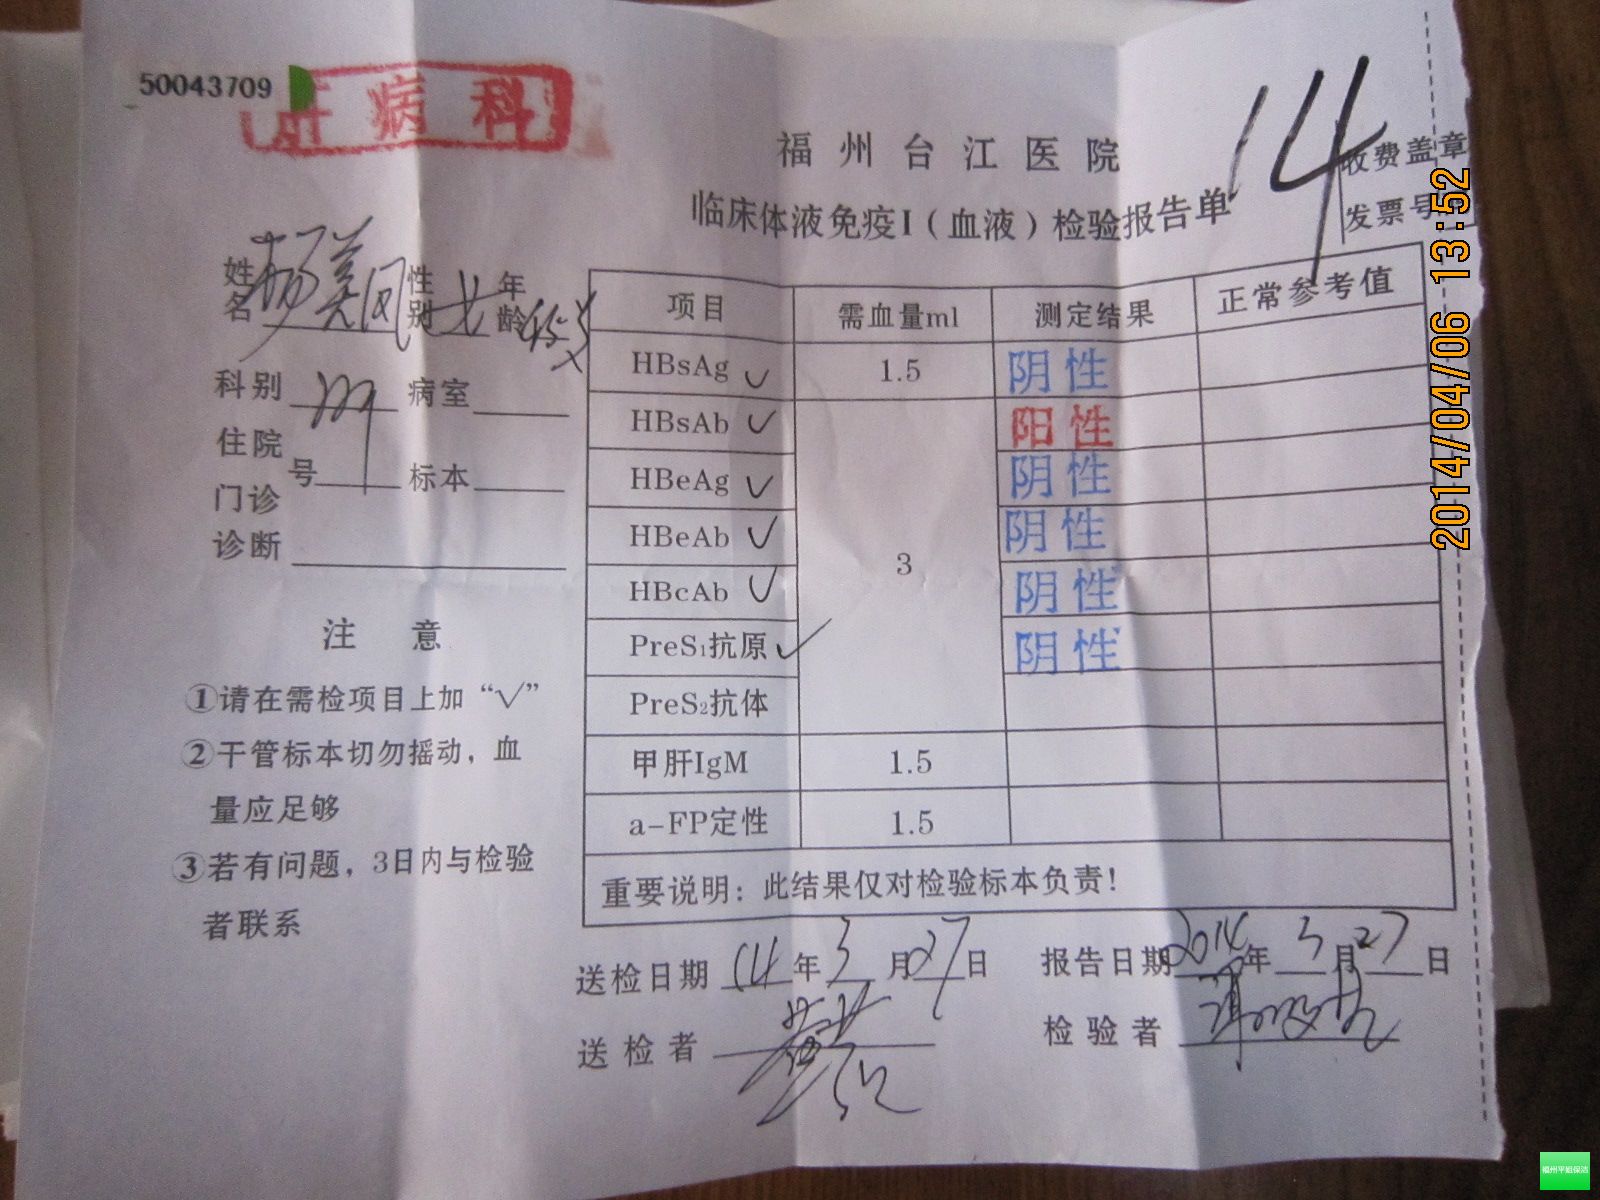 50043709
肝病科
福州台江医院
临床体液免疫I（血液）检验报告单
14
收费盖章
发票号
姓名 杨美凤 性别 女 年龄
科别 病室
住院号 标本
门诊
诊断
注 意
①请在需检项目上加“√”
②干管标本切勿摇动，血
量应足够
③若有问题，3日内与检验
者联系
项目 需血量ml 测定结果 正常参考值
HBsAg √ 1.5 阴性
HBsAb √ 3 阳性
HBeAg √ 阴性
HBeAb √ 阴性
HBcAb √ 阴性
PreS₁抗原 √ 阴性
PreS₂抗体
甲肝IgM 1.5
a-FP定性 1.5
重要说明：此结果仅对检验标本负责！
送检日期 14年3月27日 报告日期 2014年3月27日
送检者 检验者
2014/04/06 13:52
福州平姐保洁